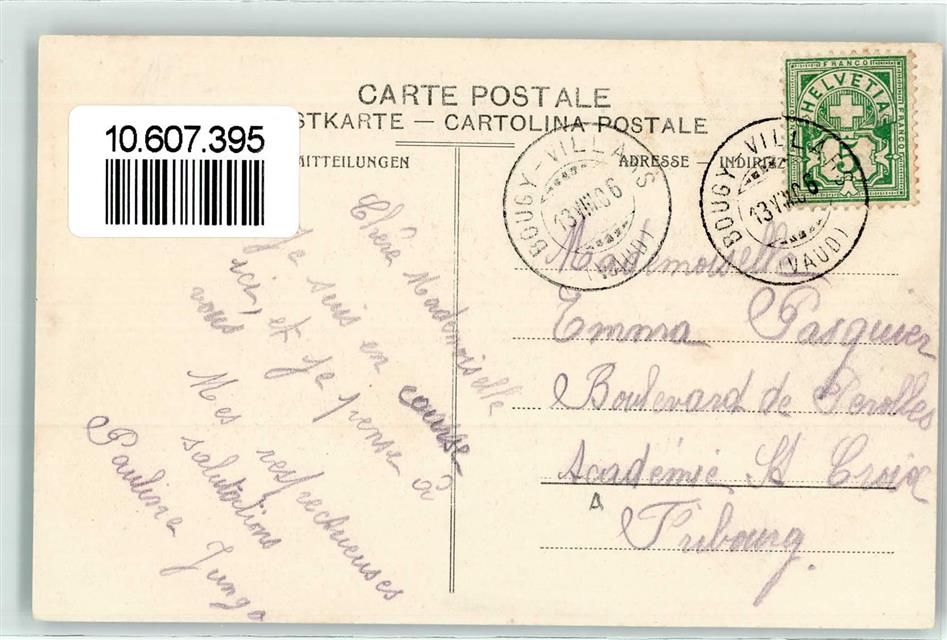 10.607.395
CARTE POSTALE
STKARTE — CARTOLINA POSTALE
MITTEILUNGEN
ADRESSE — INDIRIZ
FRANCO
HELVETIA
FRANCO
5
BOUGY-VILLARS
13 VII 06
(VAUD)
BOUGY-VILLARS
13 VII 06
(VAUD)
Chère Mademoiselle
Je suis en course
ici, et je pense à
vous
Mes respectueuses
salutations
Pauline Jungo
Mademoiselle
Emma Pasquier
Boulevard de Perolles
Académie St Croix
A
Fribourg.